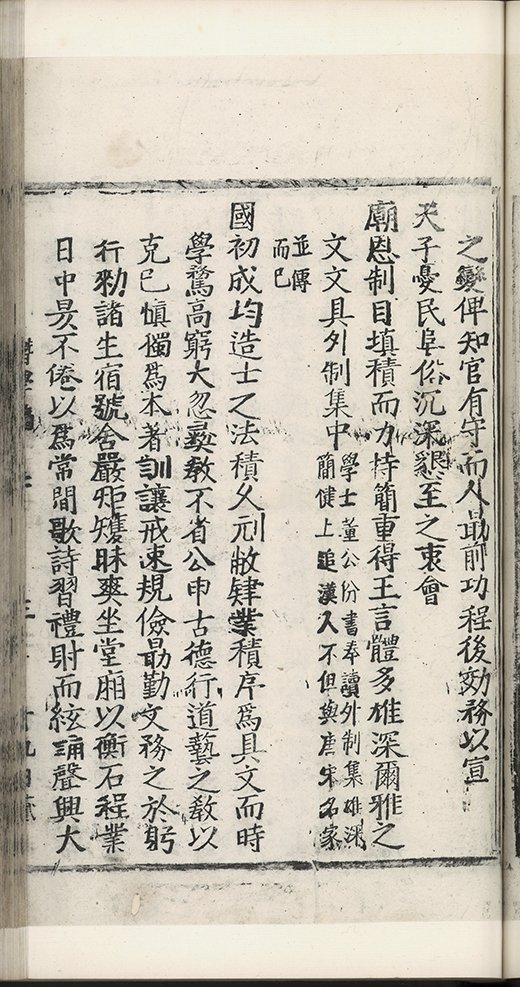 之變俾知官有守而人最前功程後効務以宣
天子憂民阜俗沉深懇至之衷會
廟恩制目填積而力持簡重得王言體多雄深爾雅之
文文具外制集中學士董公份書奉讀外制集雄深
簡健上追漢人不但與唐宋名家
並傳
而已
國初成均造士之法積久刓敝肄業積序爲具文而時
學騖高窮大忽彛教不省公申古德行道藝之教以
克己愼獨爲本著訓讓戒速規儉勗勤文務之於躬
行勑諸生宿號舍嚴矩矱昧爽坐堂廂以衡石程業
日中昃不倦以爲常間歌詩習禮射而絃誦聲興大